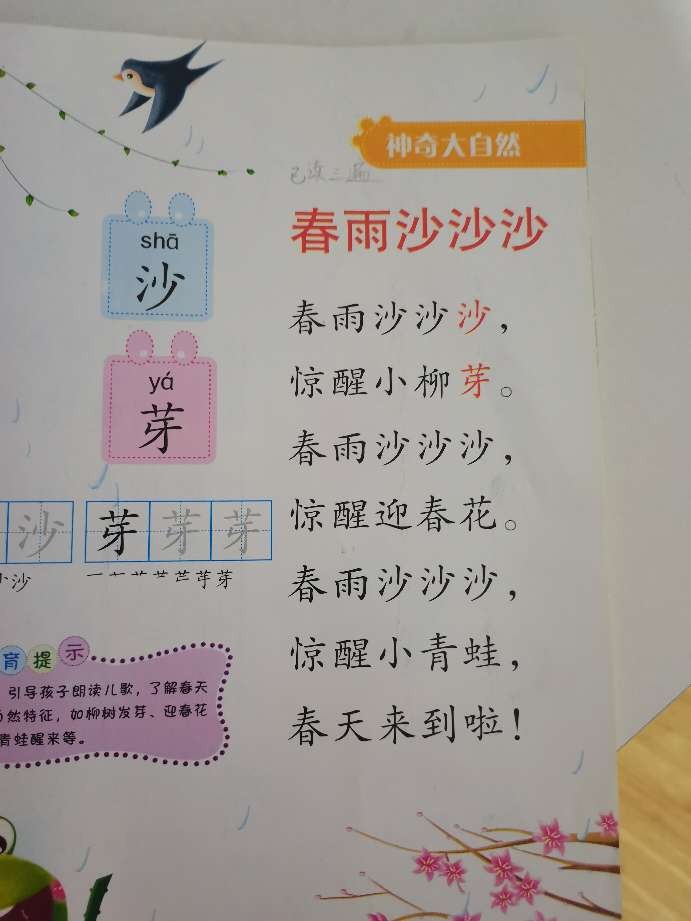 神奇大自然
已读三遍
春雨沙沙沙
春雨沙沙沙，
惊醒小柳芽。
春雨沙沙沙，
惊醒迎春花。
春雨沙沙沙，
惊醒小青蛙，
春天来到啦！
shā
沙
yá
芽
沙 芽 芽 芽
沙
芽
育提示
引导孩子朗读儿歌，了解春天
自然特征，如柳树发芽、迎春花
青蛙醒来等。